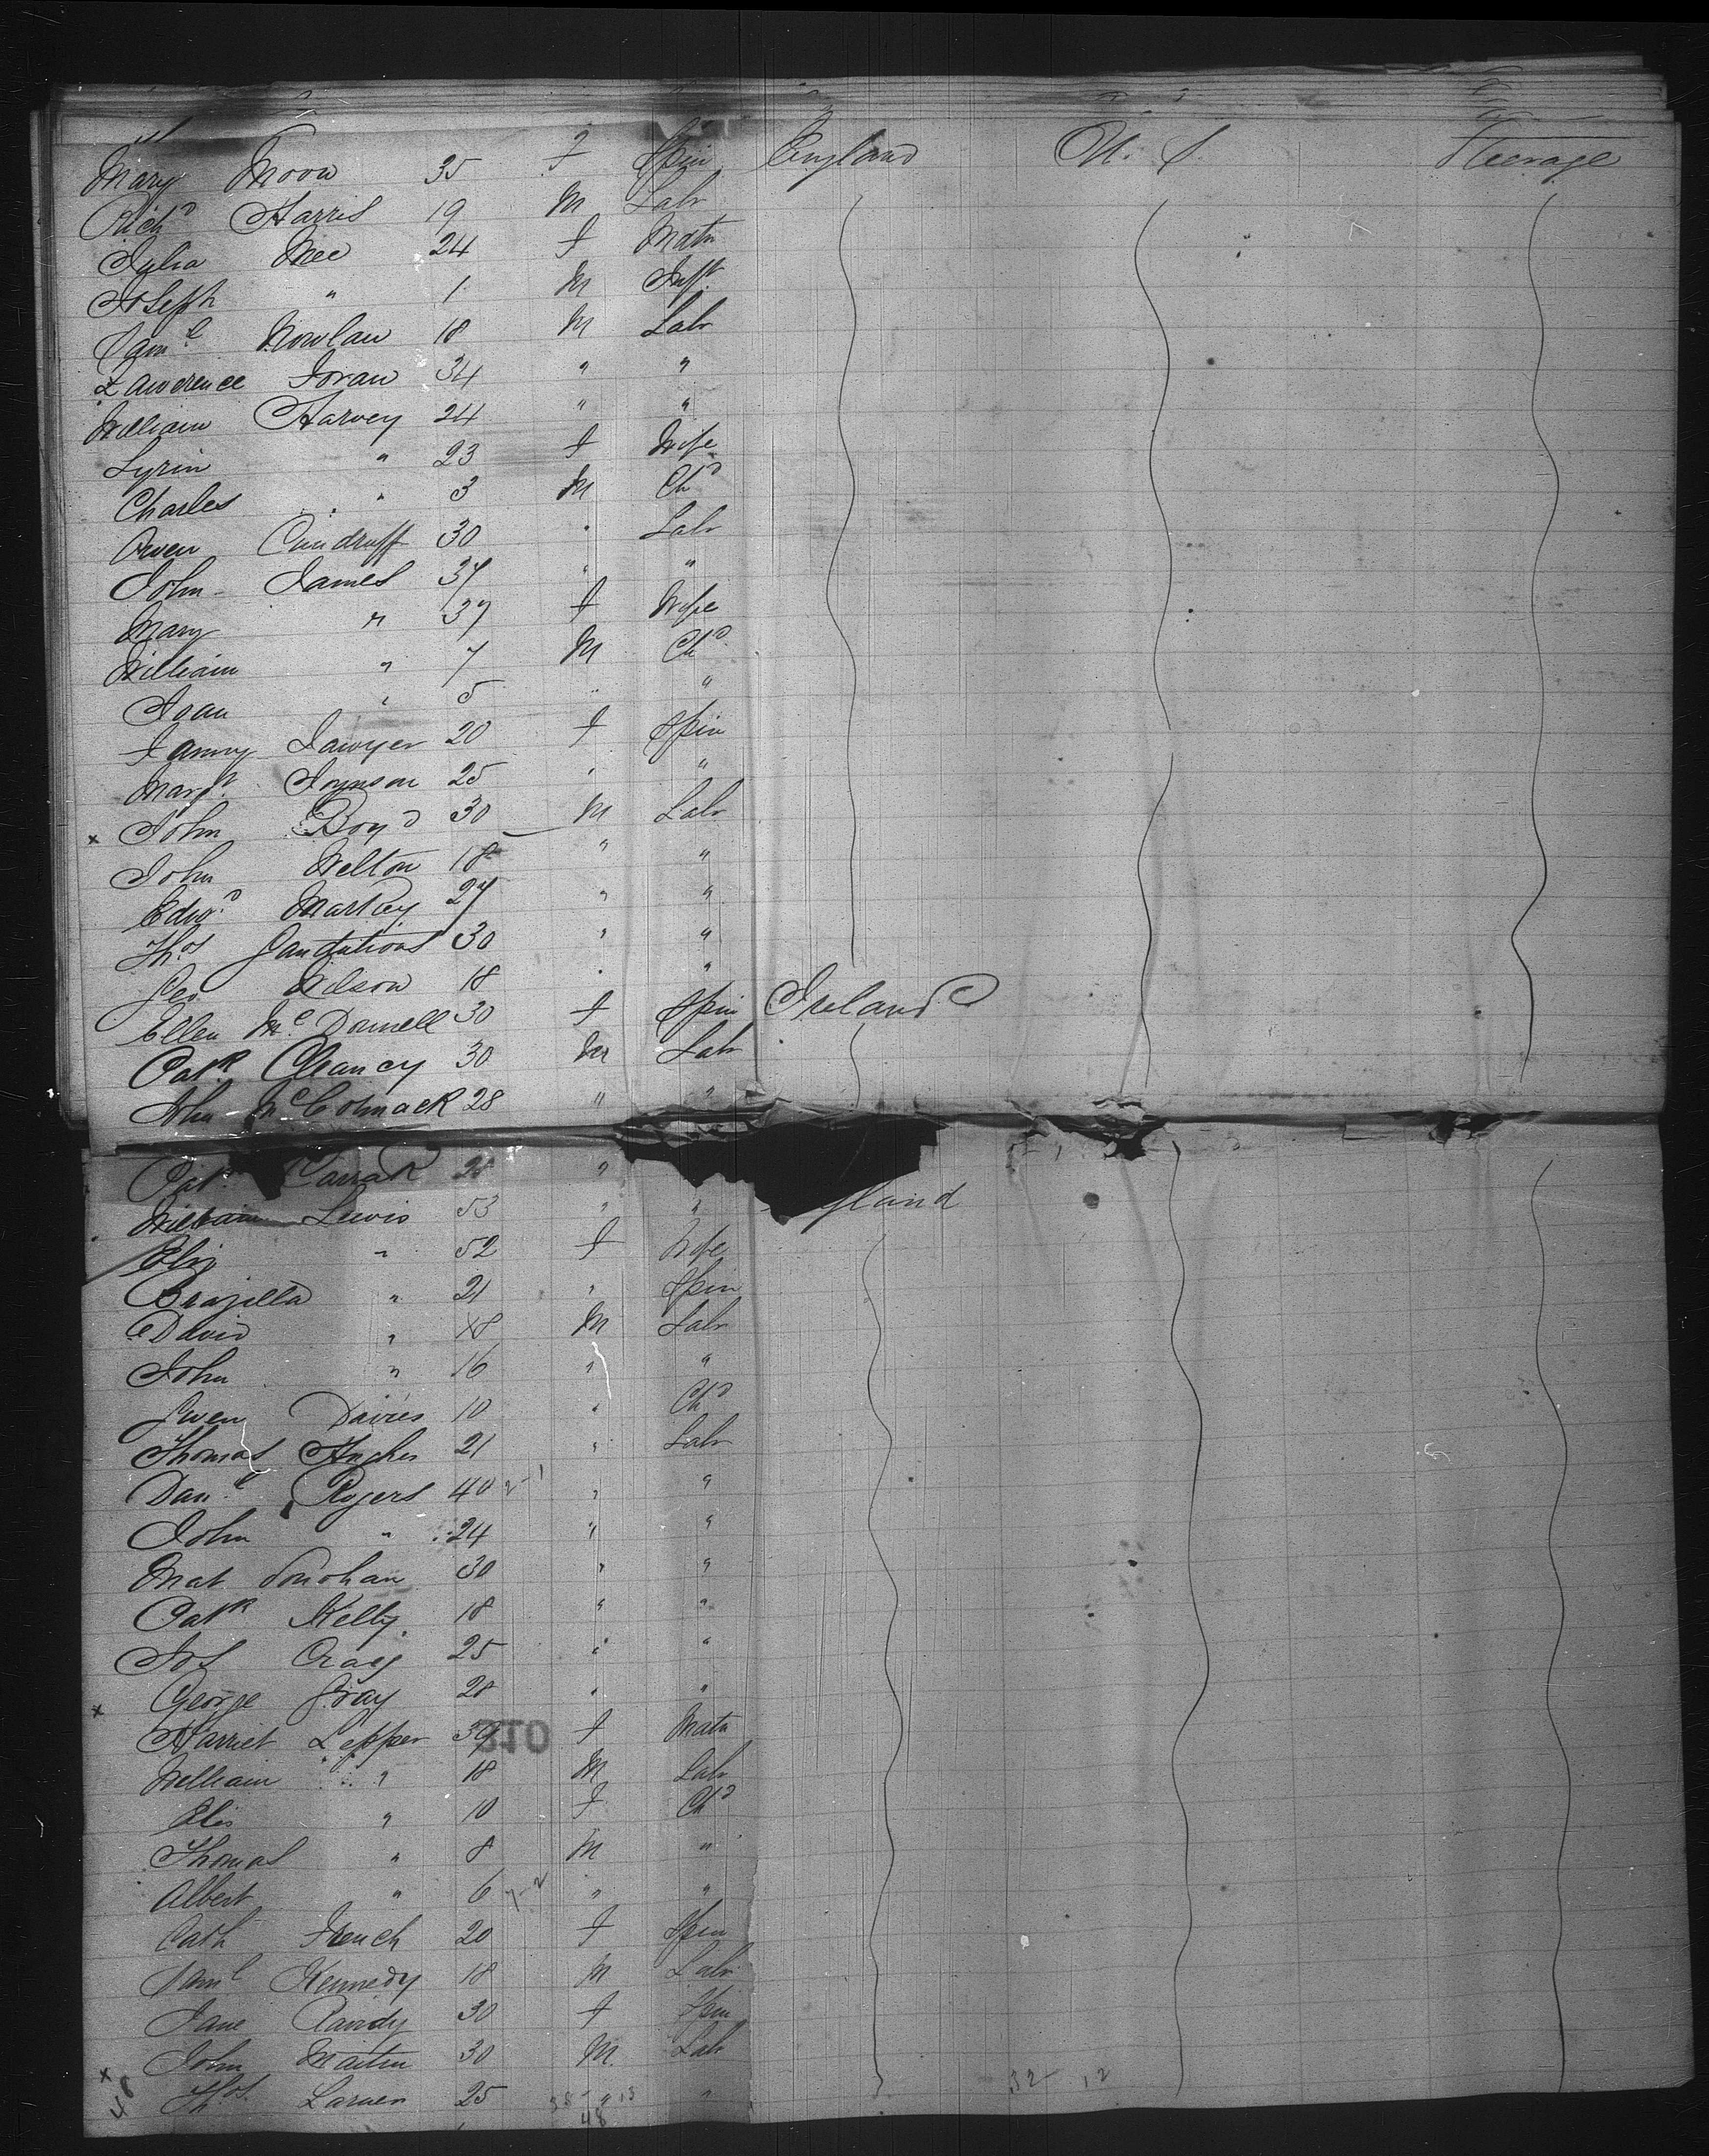 Mary Moon 35 F Spin England U. S. Steerage
Rich^d Harris 19 M Labr
Julia Mee 24 F Matn
Joseph " 1 M Inft
Sam^l Nowlan 18 M Labr
Lawerence Foran 34 " "
William Harvey 24 " "
" 23 F Wife
Charles " 3 M Ch^d
Owen 30 " Labr
John James 37 " "
Mary " 37 F Wife
William " 7 M Ch^d
" 5 " "
Fanny Sawyer 20 F Spin
Marg^t 25 " "
x John Boyd 30 M Labr
John Welton 18 " "
Edw^d 27 " "
Tho^s 30 " "
Geo Wilson 18 " "
Ellen Mc Donnell 30 F Spin Ireland
Pat^k Clancy 30 M Labr
John McComack 28 " "
Pat^k 28 "
William Lewis 53 " " gland
Eliz " 52 F Wife
" 21 " Spin
David " 18 M Labr
John " 16 " "
Gwen Davies 10 " Ch^d
Thomas Hughes 21 " Labr
Dan^l Rogers 40 " "
John " 24 " "
Mat Donohan 30 " "
Pat^k Kelly 18 " "
Jos 25 " "
x George Gray 28 " "
Harriet Lepper 39 F Matn
210
William " 18 M Labr
Elis " 10 F Ch^d
Thomas " 8 M "
Albert " 6 " "
Cath French 20 F Spin
Sam^l Kennedy 18 M Labr
Jane 30 F Spin
x John Martin 30 M Labr
48 Tho^s 25 " "
35 13 32 12
48